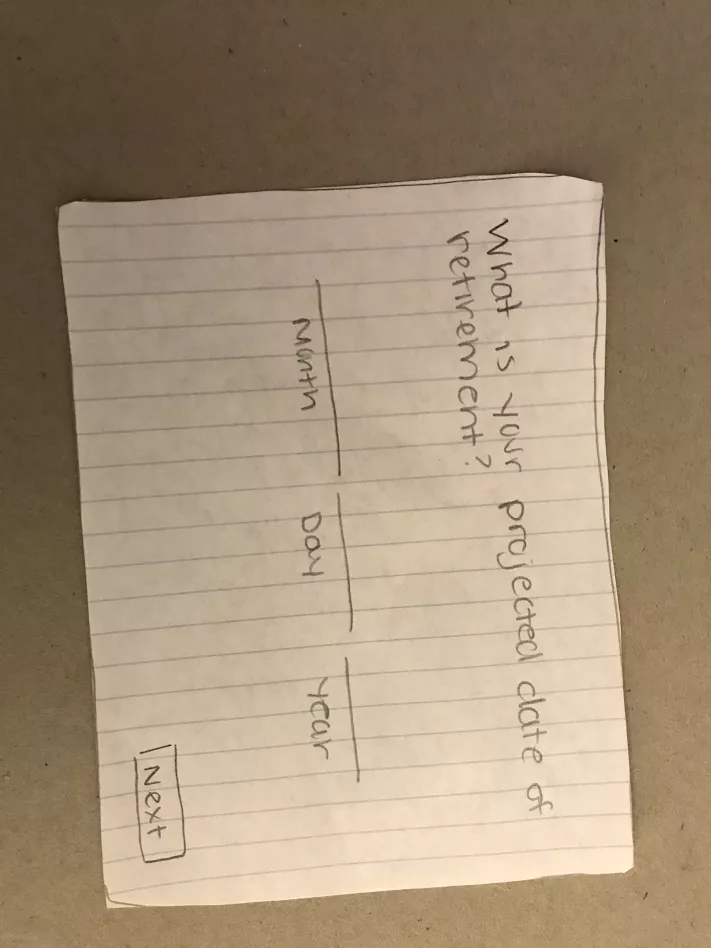 What is your projected date of
retirement?
Month Day Year
Next